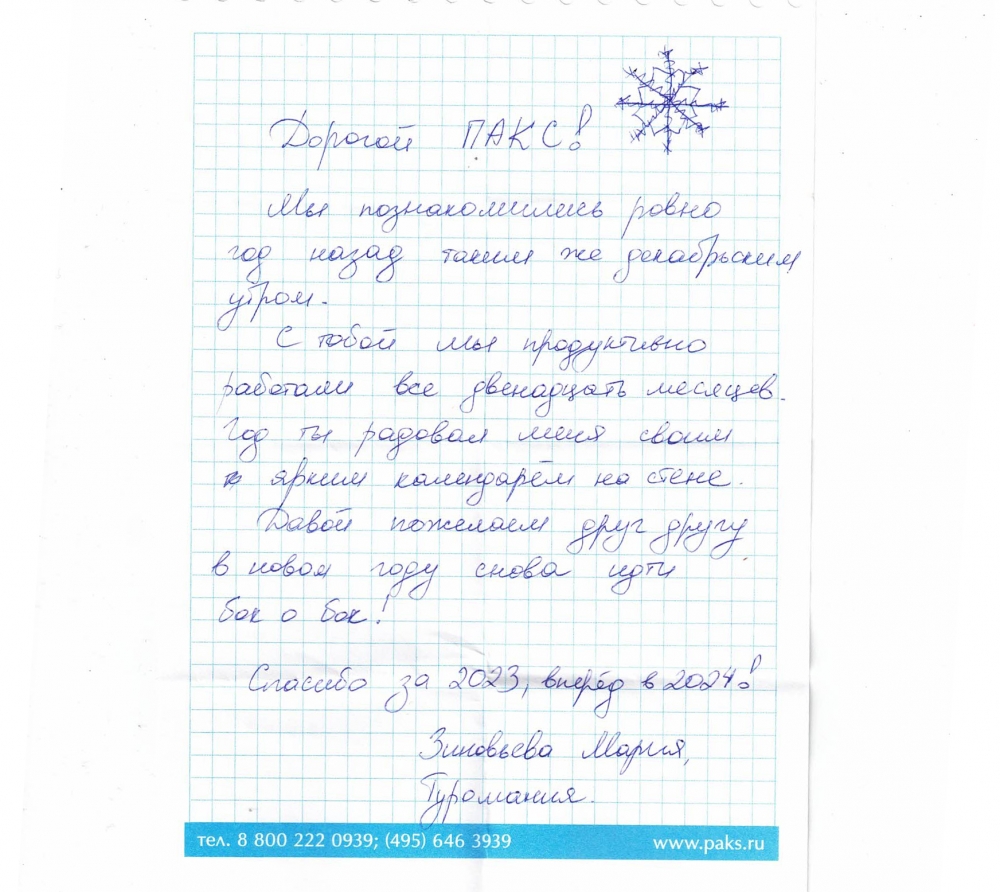 Дорогой ПАКС!
Мы познакомились ровно
год назад таким же декабрьским
утром.
С тобой мы продуктивно
работали все двенадцать месяцев.
Год ты радовал меня своим
ярким календарём на стене.
Давай пожелаем друг другу
в новом году снова идти
бок о бок!
Спасибо за 2023, вперёд в 2024!
Зиновьева Мария,
Туромания.
тел. 8 800 222 0939; (495) 646 3939
www.paks.ru